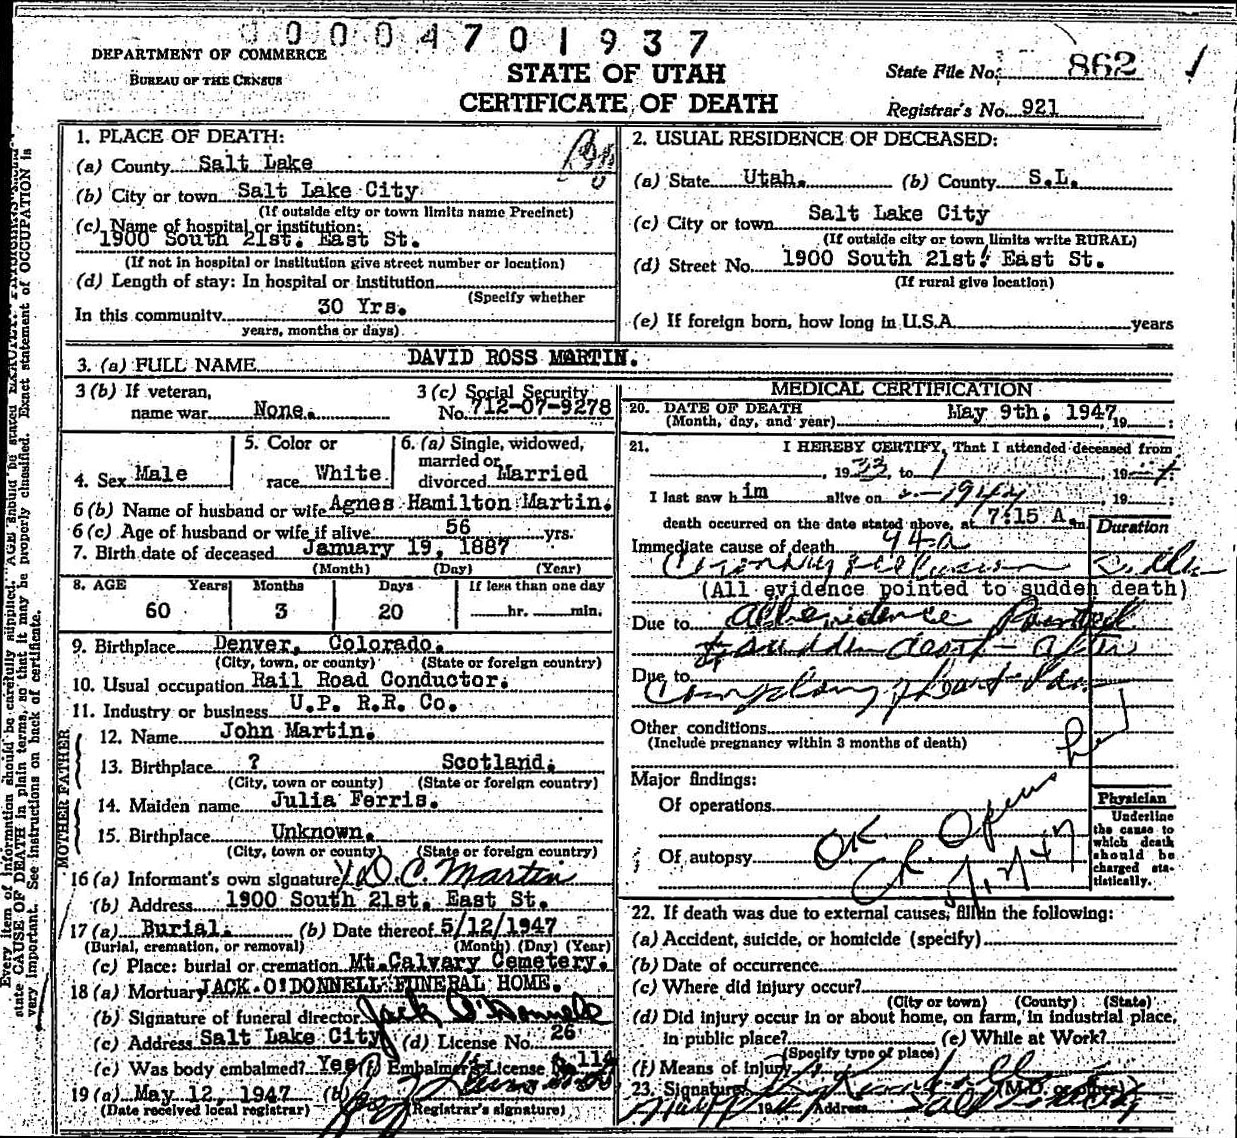 00004701937
DEPARTMENT OF COMMERCE
BUREAU OF THE CENSUS
STATE OF UTAH
CERTIFICATE OF DEATH
State File No. 862
Registrar's No. 921
1. PLACE OF DEATH:
(a) County Salt Lake
(b) City or town Salt Lake City
(If outside city or town limits name Precinct)
(c) Name of hospital or institution:
1900 South 21st. East St.
(If not in hospital or institution give street number or location)
(d) Length of stay: In hospital or institution
(Specify whether
In this community 30 Yrs.
years, months or days)
2. USUAL RESIDENCE OF DECEASED:
(a) State Utah. (b) County S.L.
(c) City or town Salt Lake City
(If outside city or town limits write RURAL)
(d) Street No. 1900 South 21st. East St.
(If rural give location)
(e) If foreign born, how long in U.S.A. years
3. (a) FULL NAME DAVID ROSS MARTIN.
3 (b) If veteran,
name war None.
3 (c) Social Security
No. 712-07-9278
4. Sex Male
5. Color or
race White
6. (a) Single, widowed,
married or
divorced Married
6 (b) Name of husband or wife Agnes Hamilton Martin.
6 (c) Age of husband or wife if alive 56 yrs.
7. Birth date of deceased January 19, 1887
(Month) (Day) (Year)
8. AGE Years Months Days If less than one day
60 3 20 hr. min.
9. Birthplace Denver, Colorado.
(City, town, or county) (State or foreign country)
10. Usual occupation Rail Road Conductor.
11. Industry or business U.P. R.R. Co.
FATHER
12. Name John Martin.
13. Birthplace ? Scotland.
(City, town or county) (State or foreign country)
MOTHER
14. Maiden name Julia Ferris.
15. Birthplace Unknown.
(City, town or county) (State or foreign country)
16 (a) Informant's own signature D. C. Martin
(b) Address 1900 South 21st. East St.
17 (a) Burial. (b) Date thereof 5/12/1947
(Burial, cremation, or removal) (Month) (Day) (Year)
(c) Place: burial or cremation Mt.Calvary Cemetery.
18 (a) Mortuary JACK O'DONNELL FUNERAL HOME.
(b) Signature of funeral director Jack O'Donnell
(c) Address Salt Lake City (d) License No. 26
(e) Was body embalmed? Yes (f) Embalmer's License No. 114
19 (a) May 12, 1947 (b)
(Date received local registrar) (Registrar's signature)
MEDICAL CERTIFICATION
20. DATE OF DEATH May 9th. 1947, 19
(Month, day, and year)
21. I HEREBY CERTIFY, That I attended deceased from
, 19 33 to 19
I last saw h im alive on 1944 19
death occurred on the date stated above, at 7:15 A. m.
Duration
Immediate cause of death 94a
Coronary occlusion Sudden
(All evidence pointed to sudden death)
Due to All evidence Pointed
to sudden death - after
Due to
Complaining of heart Pain
Other conditions
(Include pregnancy within 3 months of death)
Major findings:
Of operations
Of autopsy
O.K.
Physician
Underline
the cause to
which death
should be
charged sta-
tistically.
22. If death was due to external causes, fill in the following:
(a) Accident, suicide, or homicide (specify)
(b) Date of occurrence
(c) Where did injury occur?
(City or town) (County) (State)
(d) Did injury occur in or about home, on farm, in industrial place,
in public place? (e) While at Work?
(Specify type of place)
(f) Means of injury
23. Signature (M.D. or other)
19 Address
Every item of information should be carefully supplied. AGE should be stated EXACTLY. PHYSICIANS should
state CAUSE OF DEATH in plain terms, so that it may be properly classified. Exact statement of OCCUPATION is
very important. See instructions on back of certificate.